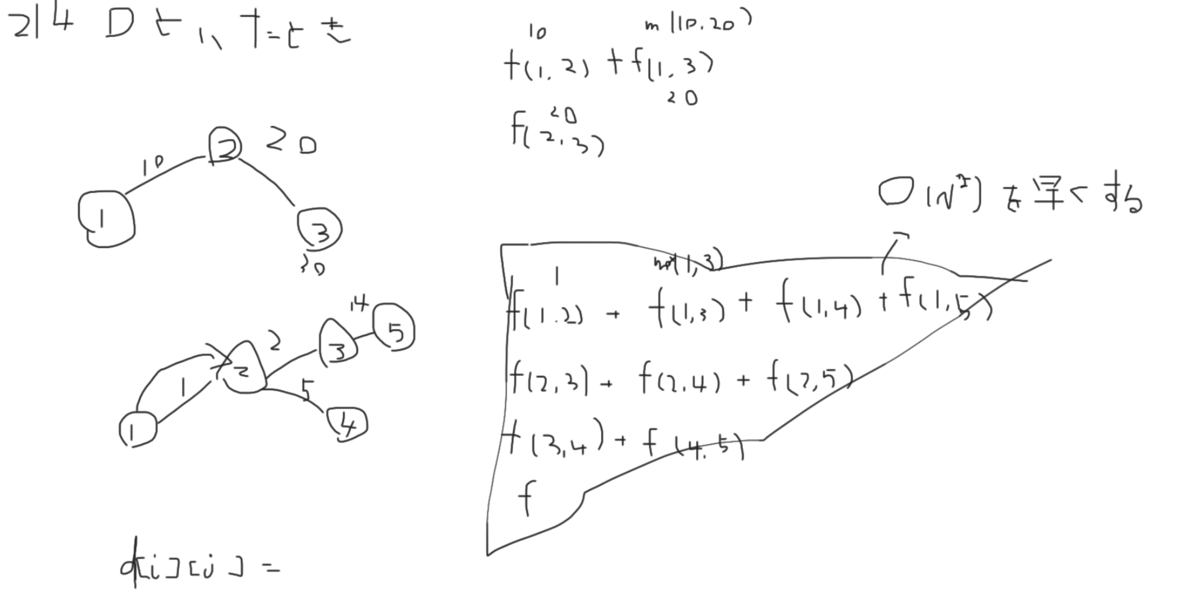 214 D といたとき
10 m(10.20)
f(1.2) + f(1.3)
20
20
f(2.3)
10
2 20
1
3
30
O(N²) を早くする
1
f(1.2) + f(1,3) + f(1,4) + f(1,5)
f(2,3) + f(2,4) + f(2,5)
f(3,4) + f(4.5)
f
14
2 3 5
1 2 5
1 4
d[i][j] =